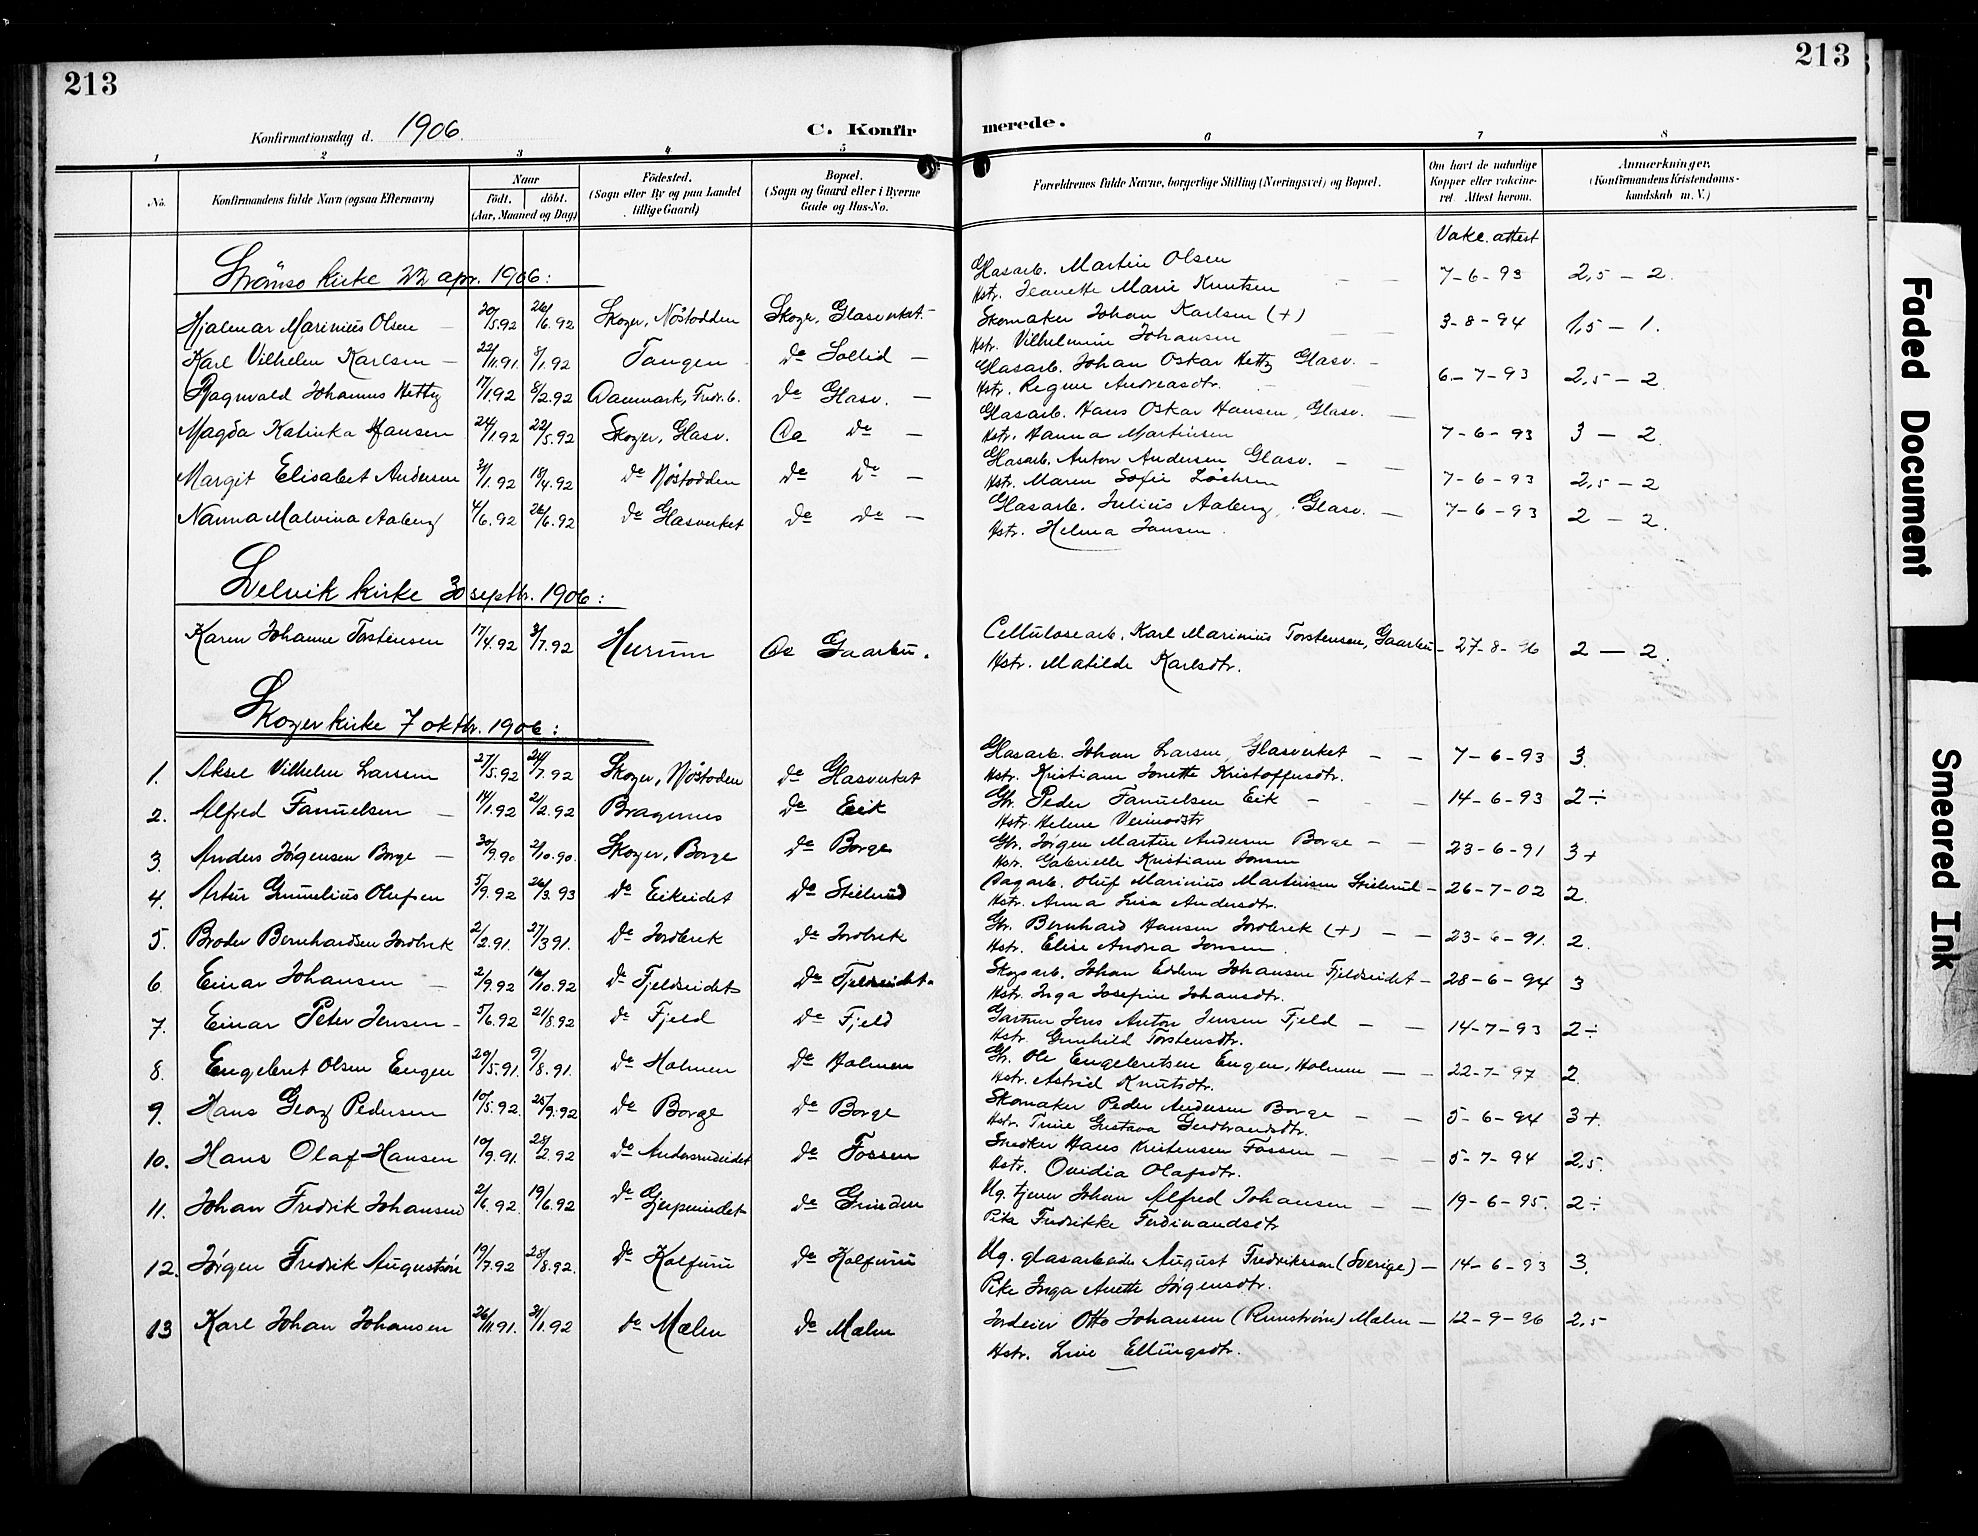 213
213
Konfirmationsdag d. 1906.
C. Konfirmerede.
1 2 3 4 5 6 7 8
No.
Konfirmandens fulde Navn (ogsaa Efternavn)
Naar
født. døbt.
(Aar, Maaned og Dag)
Fødested.
(Sogn eller By og paa Landet
tillige Gaard)
Bopæl.
(Sogn og Gaard eller i Byerne
Gade og Hus-No.
Forældrenes fulde Navne, borgerlige Stilling (Næringsvei) og Bopæl.
Om havt de naturlige
Kopper eller vakcine-
ret. Attest herom.
Anmærkninger,
(Konfirmandens Kristendoms-
kundskab m. V.)
Vakc. attest
Strömsø kirke 22 apr. 1906:
Hjalmar Marinius Olsen — 30/5.92 26/6.92 Skoger, Nøstodden Skoger, Glasverket - Glasarb. Martin Olsen 7-6-93 2,5 — 2.
Hstr. Jeanette Marie Knutsen
Karl Vilhelm Karlsen — 22/11.91 8/1.92 Tangen do Sollid — Skomaker Johan Karlsen (+) 3-8-94 1,5 — 1.
Hstr. Vilhelmine Johansen
Ragnvald Johannes Hettig 17/1.92 8/2.92 Danmark, Fredr.b. do Glasv. — Glasarb. Johan Oskar Hettig Glasv. 6-7-93 2,5 — 2
Hstr. Regine Andreasdtr.
Magda Katinka Hansen 24/1.92 22/5.92 Skoger, Glasv. do do — Glasarb. Hans Oskar Hansen, Glasv. — 7-6-93 3 — 2.
Hstr. Hanna Martinsen
Margit Elisabet Andersen 31/1.92 18/4.92 do Nøstodden do do — Glasarb. Anton Andersen Glasv. 7-6-93 2,5 — 2
Hstr. Maren Sofie
Nanna Malvina Aaberg 4/6.92 26/6.92 do Glasverket do do — Glasarb. Julius Aaberg, Glasv. — 7-6-93 2 — 2.
Hstr. Helma Jansen.
Svelvik kirke 30 septbr. 1906:
Karen Johanne Torstensen 17/4.92 3/7.92 Hurum do Gaarbu. Cellulosearb. Karl Marinius Torstensen, Gaarbu - 27-8-96 2 — 2.
Hstr. Matilde Karlsdtr.
Skoger kirke 7 oktbr. 1906:
1. Aksel Vilhelm Larsen 27/5.92 24/7.92 Skoger, Nøstodden do Glasverket Glasarb. Johan Larsen, Glasverket 7-6-93 3.
Hstr. Kristiane Jonette Kristoffersdtr.
2. Alfred Fanuelsen — 14/1.92 21/2.92 Bragernes do Eik Gbr. Peder Fanuelsen Eik 14-6-93 2÷
Hstr. Helene
3. Anders Jørgensen Borge — 30/9.90 2/10.90. Skoger, Borge do Borge Gbr. Jørgen Martin Andersen Borge 23-6-91 3+
Hstr. Gabrielle Kristiane Jonsen
4. Artur Olufsen 5/9.92 26/3.93 do Eikeidet do Stielrud Dagarb. Oluf Marinius Martinsen Stielerud - 26-7-02 2.
Hstr. Anna Lina Andersdtr.
5. Broder Bernhardsen Jordbrek 2/2.91. 27/3 91. do Jordbrek do Jordbrek Gbr. Bernhard Hansen Jordbrek (+) 23-6-91. 2.
Hstr. Elise Andrea Jonsen
6. Einar Johansen 2/9.92 16/10.92 do Fjeldseidet do Fjeldseidet Skogsarb. Johan Edden Johansen Fjeldseidet - 28-6-94 3
Hstr. Inga Josefine Johansdtr.
7. Einar Peter Jensen 5/6.92 21/8.92 do Fjeld do Fjeld Gartner Jens Anton Jensen Fjeld 14-7-93 2÷
Hstr. Gunhild Torstensdtr.
8. Engebret Olsen Engen 29/5.91. 9/8.91. do Holmen do Holmen Gbr. Ole Engebretsen Engen, Holmen 22-7-97 2.
Hstr. Astrid Knutsdtr.
9. Hans Georg Pedersen 10/5.92 25/9.92 do Borge do Borge Skomaker Peder Andersen Borge 5-6-94 3+.
Hstr. Trine Gustava Gudbrandsdtr.
10. Hans Olaf Hansen 10/9.91. 28/2.92 do Andorsrudeidet do Fossen Snedker Hans Kristensen Fossen 5-7-94 2,5.
Hstr. Ovidia Olafsdtr.
11. Johan Fredrik Johansen 2/6.92. 19/6.92 do Gjerpeneidet do Grinden Ug. tjener Johan Alfred Johansen 19-6-95. 2÷
Pike Fredrikke Ferdinandsdtr
12. Jørgen Fredrik Augustsøn 19/7.92 28/8.92. do Kolfuru do Kolfuru Ug. glasarbeider August Fredriksson (Sverige) — 14-6-93 3.
Pike Inga Anette Jørgensdtr.
13 Karl Johan Johansen 26/11.91. 31/1.92 do Mælen do Mælen Jordeier Otto Johansen (Runström) Mælen — 12-9-96 2,5
Hstr. Line Ellingsdtr.
Faded Document
Smeared Ink